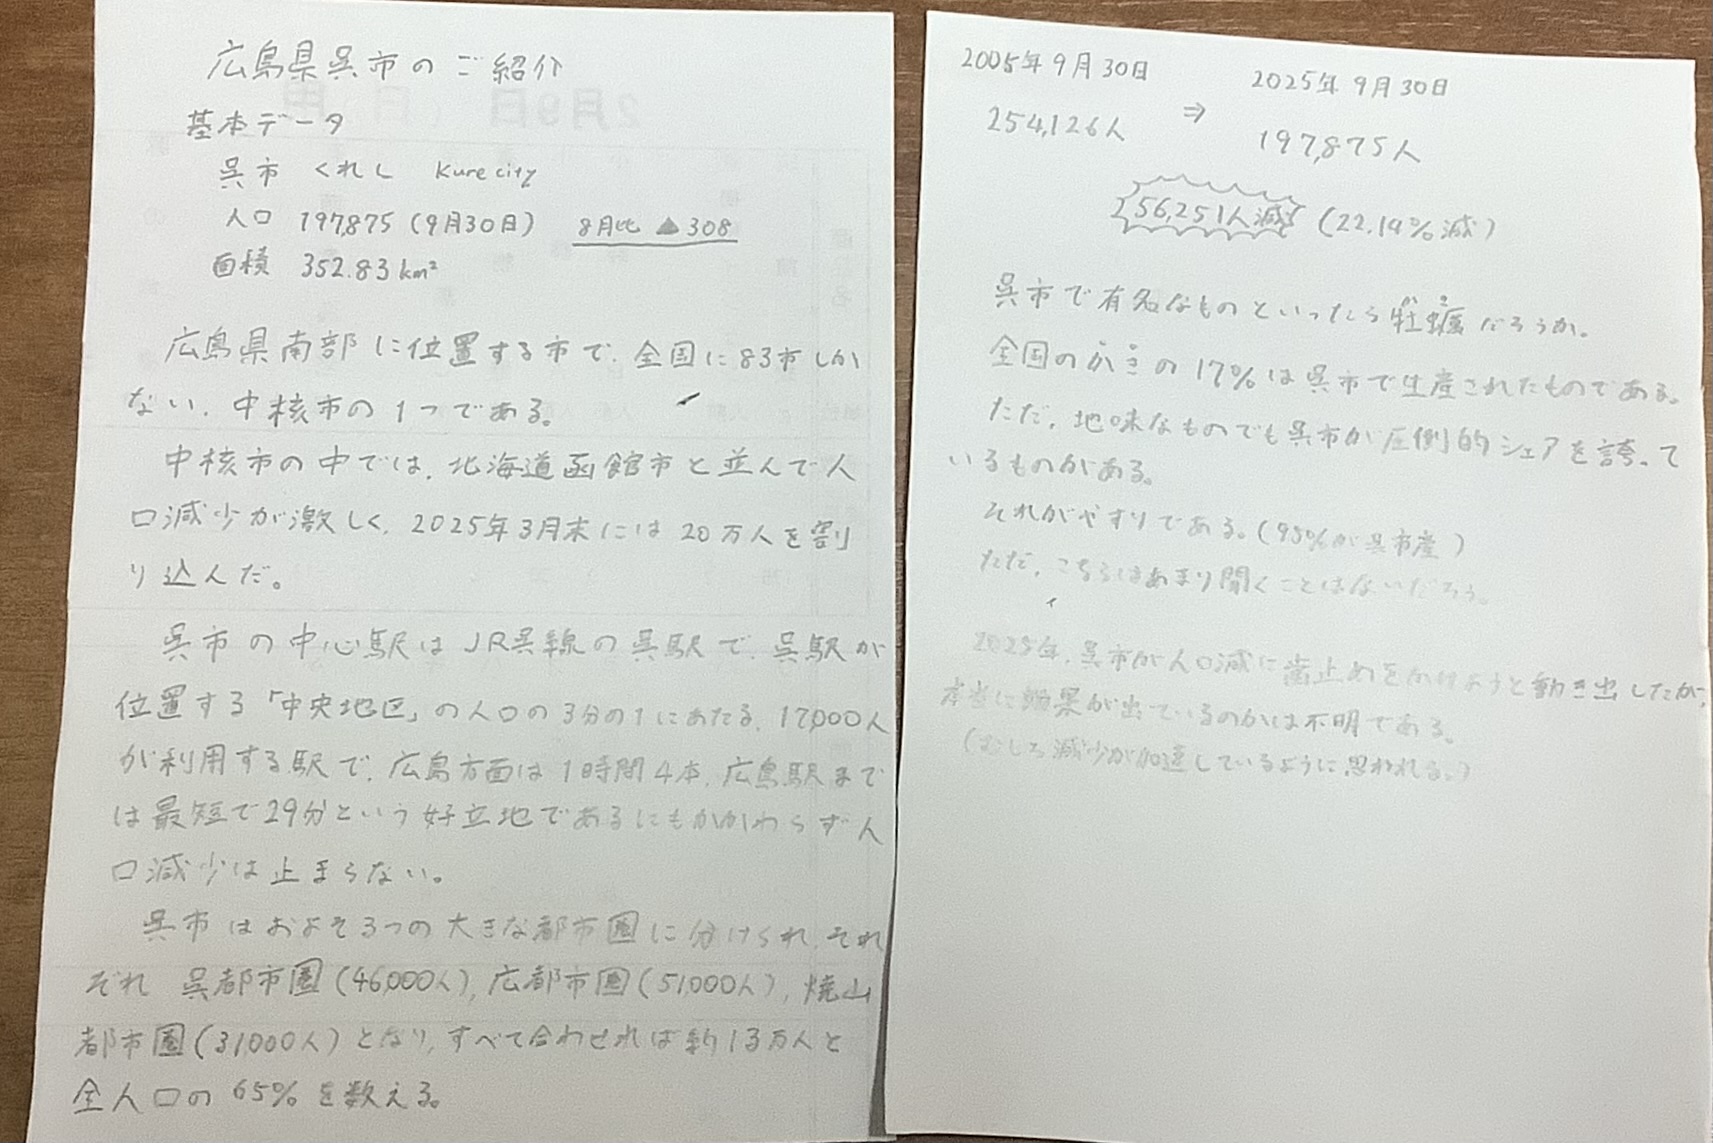 広島県呉市のご紹介
基本データ
呉市 くれし Kure city
人口 197,875 (9月30日) 8月比 ▲308
面積 352.83km²
広島県南部に位置する市で、全国に83市しか
ない、中核市の1つである。
中核市の中では、北海道函館市と並んで人
口減少が激しく、2025年3月末には20万人を割
り込んだ。
呉市の中心駅はJR呉線の呉駅で、呉駅が
位置する「中央地区」の人口の3分の1にあたる、17,000人
が利用する駅で、広島方面は1時間4本、広島駅まで
は最短で29分という好立地であるにもかかわらず人
口減少は止まらない。
呉市はおよそ3つの大きな都市圏に分けられ、それ
ぞれ 呉都市圏(46,000人)、広都市圏(51,000人)、焼山
都市圏(31,000人)となり、すべて合わせれば約13万人と
全人口の65%を数える。
2005年9月30日 2025年9月30日
254,126人 ⇒ 197,875人
56,251人減 (22.19%減)
呉市で有名なものといったら牡蠣だろうか。
全国のかきの17%は呉市で生産されたものである。
ただ、地味なものでも呉市が圧倒的シェアを誇って
いるものがある。
それがやすりである。(95%が呉市産)
ただ、こちらはあまり聞くことはないだろう。
2025年、呉市が人口減に歯止めをかけようと動き出したが、
本当に効果が出ているのかは不明である。
(むしろ減少が加速しているように思われる。)